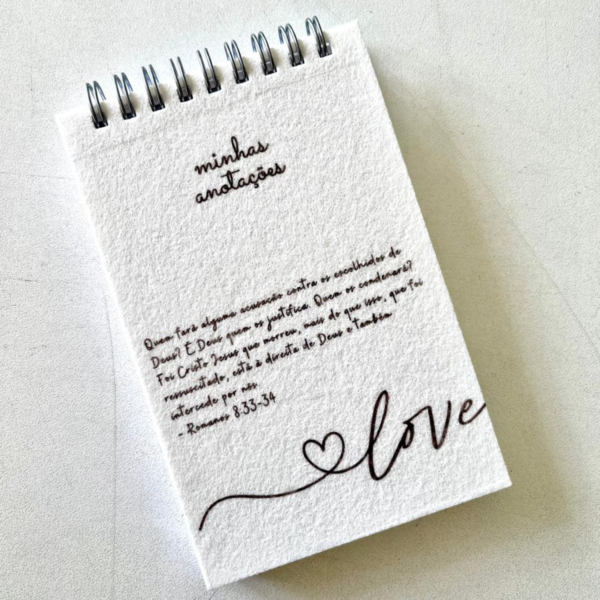 minhas
anotações
Quem fará alguma acusação contra os escolhidos de
Deus? É Deus quem os justifica. Quem os condenará?
Foi Cristo Jesus que morreu, mais do que isso, que foi
ressuscitado, está à direita de Deus e também
intercede por nós
- Romanos 8:33-34
love